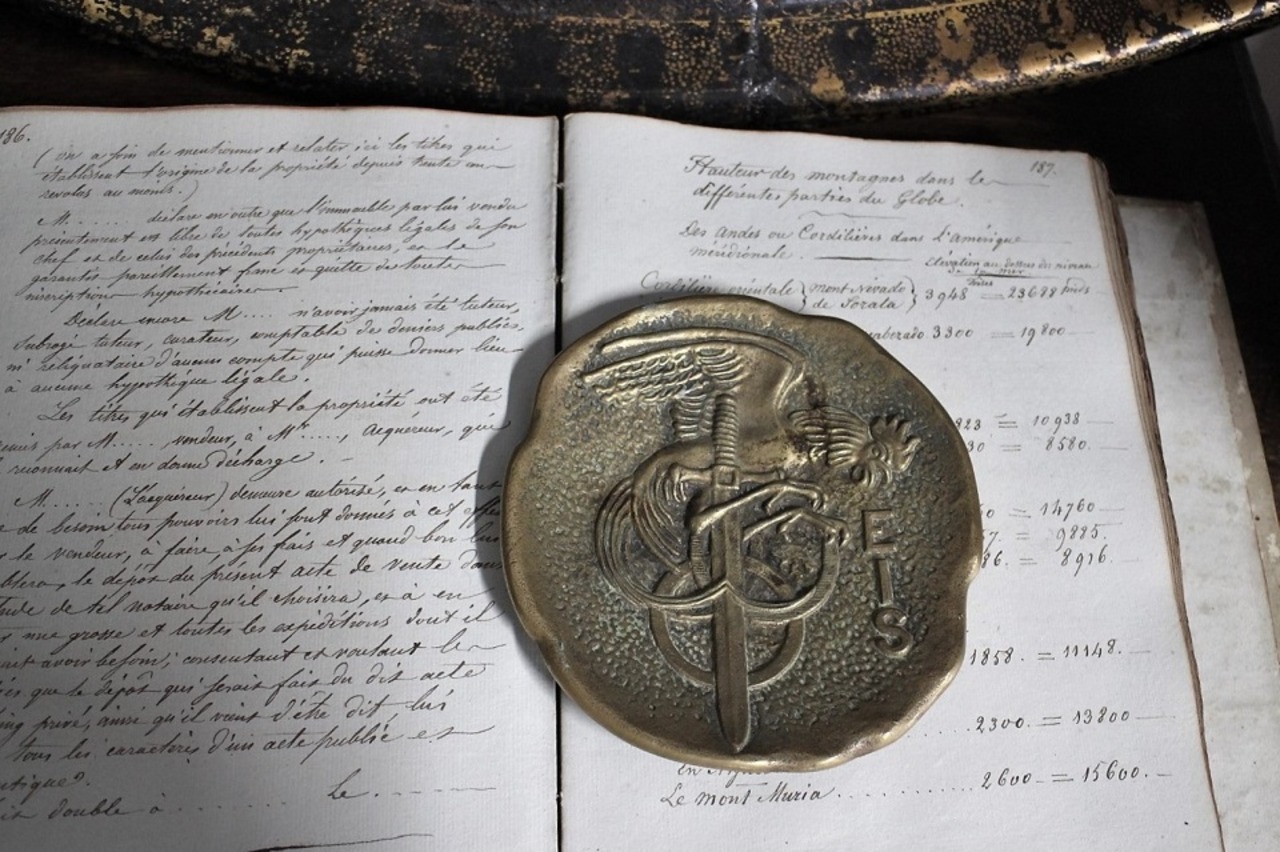 186.
(on a soin de mentionner et relater ici les titres qui
établissent l'origine de la propriété depuis trente ans
revolus au moins.)
M...... déclare en outre que l'immeuble par lui vendu
présentement est libre de toutes hypothèques légales de son
chef et de celui des précédents propriétaires, et le
garantit pareillement franc et quitte de toute
inscription hypothécaire.
Declare encore M.... n'avoir jamais été tuteur,
subrogé tuteur, curateur, comptable de deniers publics,
ni réliquataire d'aucun compte qui puisse donner lieu
à aucune hypothèque légale.
Les titres qui établissent la propriété ont été
par M....., vendeur, à Mr....., Acquéreur, qui
reconnait et en donne décharge.
M...... (L'acquéreur) demeure autorisé, et en tant
de besoin tous pouvoirs lui sont donnés à cet effet
le vendeur, à faire, à ses fais et quand bon lui
le dépôt du présent acte de vente dans
de tel notaire qu'il choisira, et à en
une grosse et toutes les expéditions dont il
avoir besoin; consentant et voulant
que le dépôt qui serait fait du dit acte
privé, ainsi qu'il vient d'être dit, lui
tous les caractères d'un acte public et
double à ........ le .......
187.
Hauteur des montagnes dans le
différentes parties du Globe.
Des Andes ou Cordilières dans L'Amérique
méridionale.
Elévation au dessus du niveau
de la mer
Toises
Cordilière orientale { mont Nivado
de Sorata } 3948 = 23688 pieds
3300 = 19800
823 = 10938
30 = 8580.
= 14760
7. = 9885.
86. = 8916.
1858. = 11148.
2300. = 13800
2600 = 15600.
Le mont Muria
E
I
S